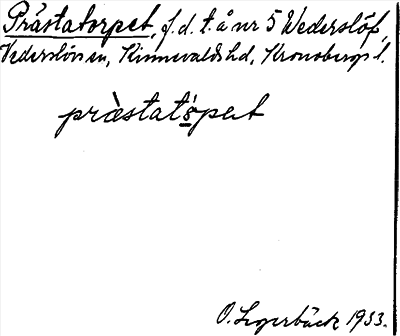 Prästatorpet, f.d. t. å nr 5 Wederslöf,
Vederslövs sn, Kinnevalds hd, Kronobergs l.
præ̀statȯ́pet
O. Lagerbäck 1933.